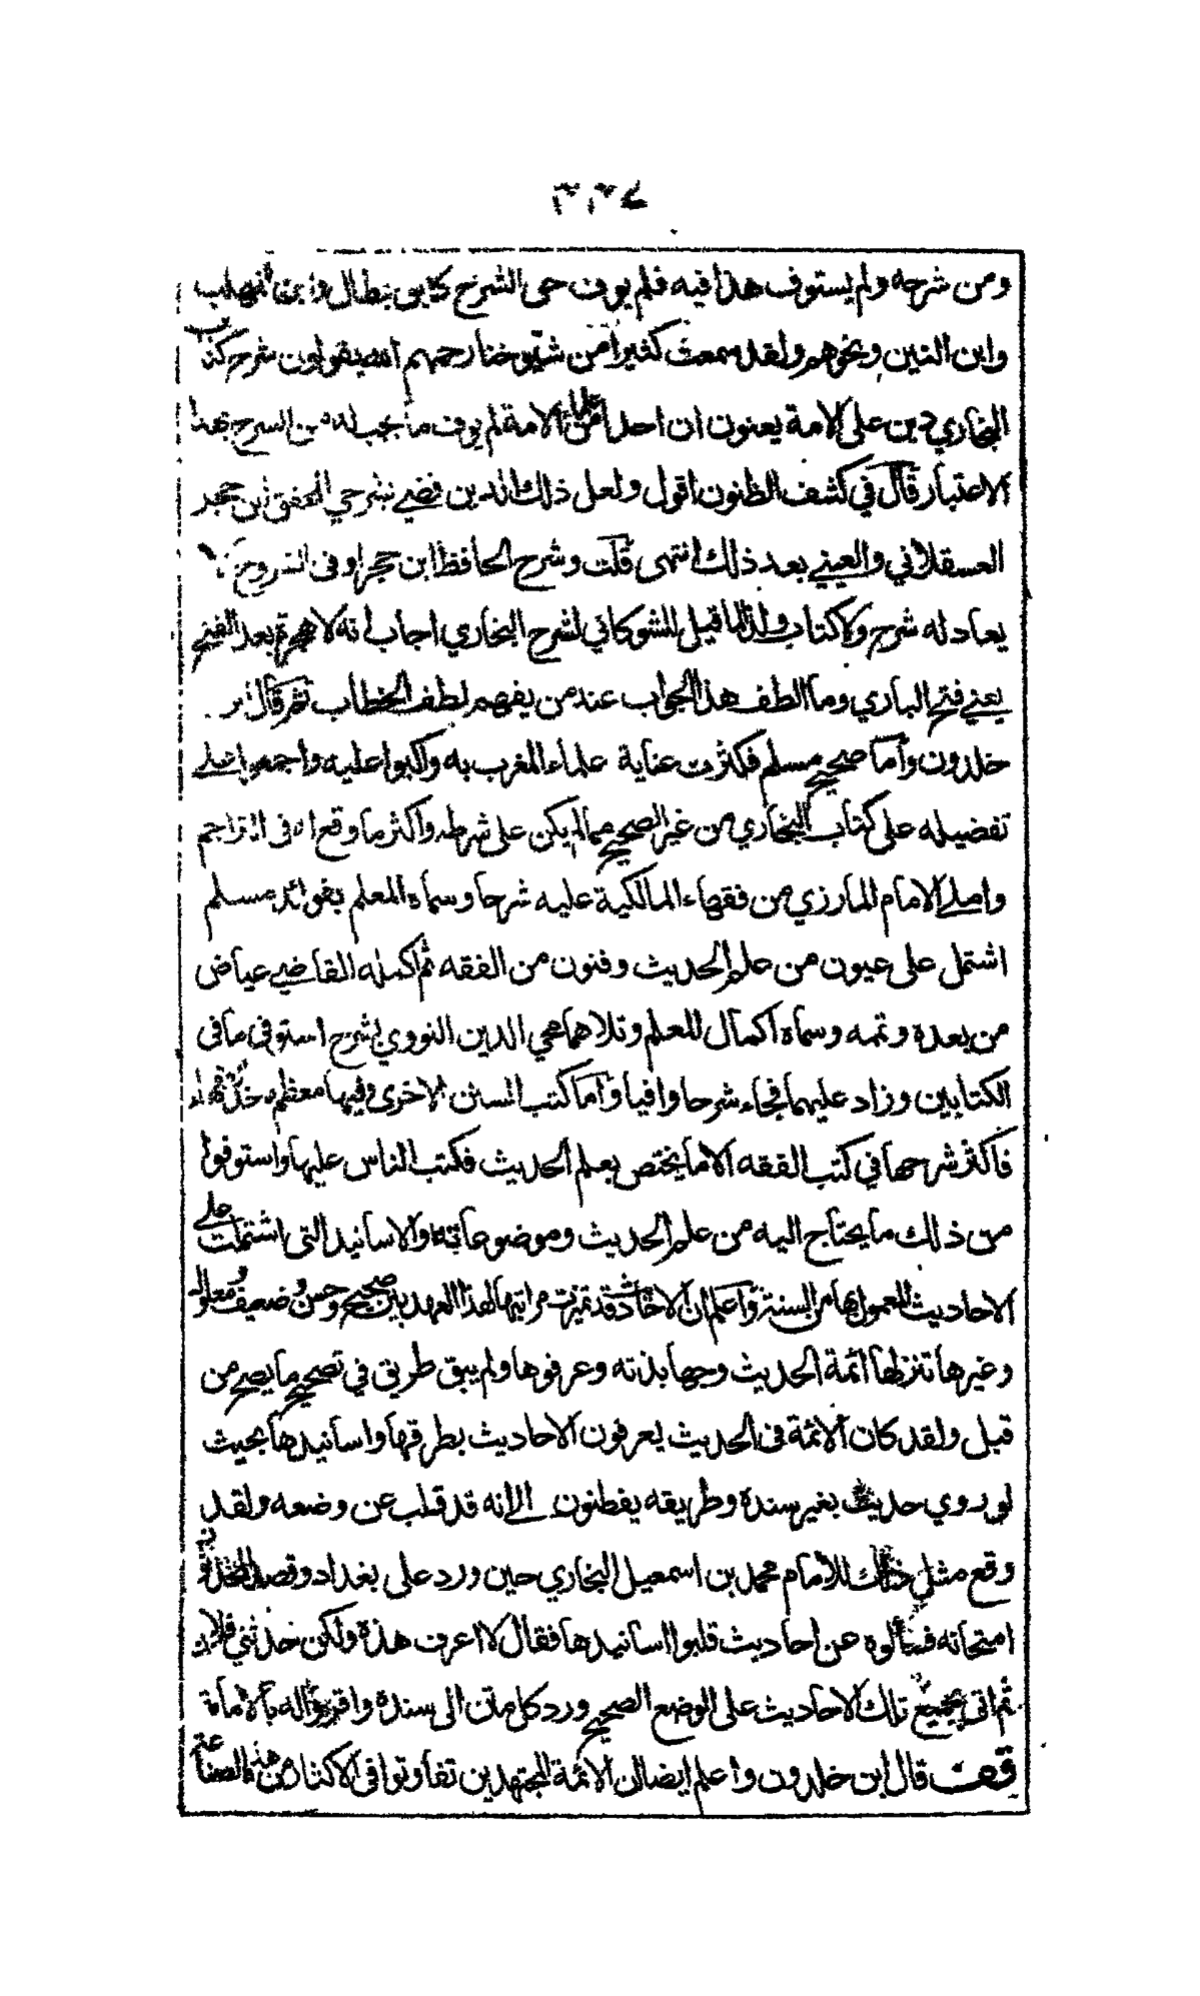 ومن شرحه ولم يستوف هذا فيه فلم يوف حق الشرح كابن بطال وابن المهلب
وابن التين ونحوهم ولقد سمعت كثيرا من شيوخنا رحمهم الله يقولون شرح كتاب
البخاري دين على الامة يعنون ان احدا من علماء الامة لم يوف ما يجب له من الشرح بهذا
الاعتبار قال في كشف الظنون اقول ولعل ذلك الدين قضي بشرحي المحقق ابن حجر
العسقلاني والعيني بعد ذلك انتهى قلت وشرح الحافظ ابن حجر اوفى الشروح لا
يعادله شرح ولا كتاب ولذا لما قيل للشوكاني لشرح البخاري اجاب انه لا هجرة بعد الفتح
يعني فتح الباري وما الطف هذا الجواب عند من يفهم لطف الخطاب ثم قال ابن
خلدون وأما صحيح مسلم فكثرت عناية علماء المغرب به وأكبوا عليه واجمعوا على
تفضيله على كتاب البخاري من غير الصحيح مما لم يكن على شرطه وأكثر ما وقع له فى التراجم
واملى الامام المارزي من فقهاء المالكية عليه شرحا وسماه المعلم بفوائد مسلم
اشتمل على عيون من علم الحديث وفنون من الفقه ثم أكمله القاضي عياض
من بعده وتمه وسماه اكمال المعلم وتلاهما محي الدين النووي بشرح استوفى ما فى
الكتابين وزاد عليهما فجاء شرحا وافيا وأما كتب السنن الاخرى وفيها معظم مأخذ الفقهاء
فأكثر شرحها في كتب الفقه الا ما يختص بعلم الحديث فكتب الناس عليها واستوفوا
من ذلك ما يحتاج اليه من علم الحديث وموضوعاته والاسانيد التى اشتملت على
الاحاديث المعمول بها من السنة واعلم ان الاحاديث قد تميزت مراتبها لهذا العهد بين صحيح وحسن وضعيف ومعلول
وغيرها تنزلها أئمة الحديث وجهابذته وعرفوها ولم يبق طريق في تصحيح ما يصح من
قبل ولقد كان الائمة فى الحديث يعرفون الاحاديث بطرقها واسانيدها بحيث
لو روي حديث بغير سنده وطريقه يفطنون الى انه قد قلب عن وضعه ولقد
وقع مثل ذلك للأمام محمد بن اسمعيل البخاري حين ورد على بغداد وقصد المحدثون
امتحانه فسألوه عن احاديث قلبوا اسانيدها فقال لا اعرف هذه ولكن حدثني فلان
ثم اتى بجميع تلك الاحاديث على الوضع الصحيح ورد كل متن الى سنده واقروا له بالامامة
قف قال ابن خلدون واعلم ايضا ان الائمة المجتهدين تفاوتوا فى الاكثار من هذه الصناعة